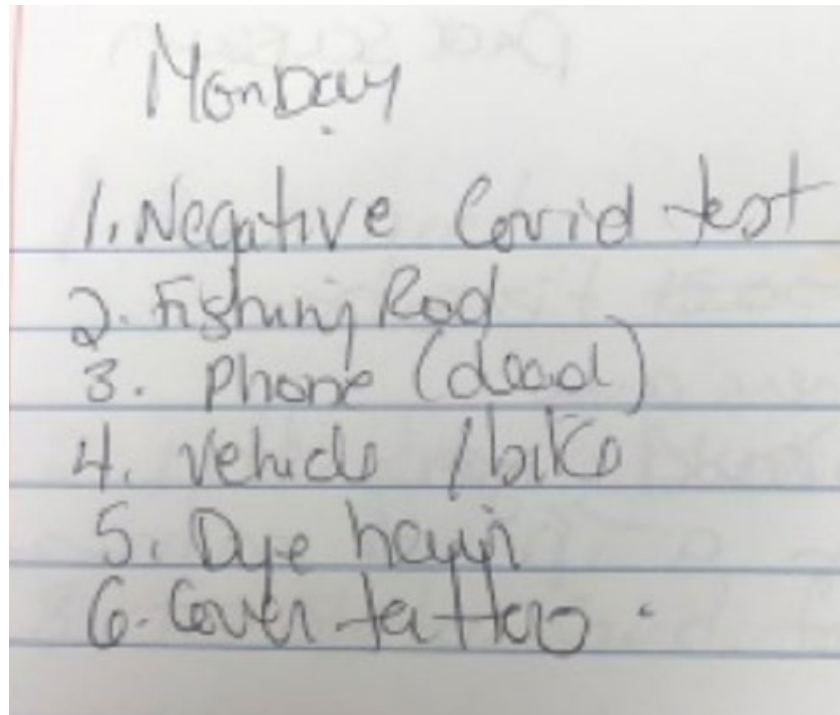 Monday
1. Negative Covid test
2. Fishing Rod
3. Phone (dead)
4. Vehicle / bike
5. Dye hair
6. Cover tattoo.